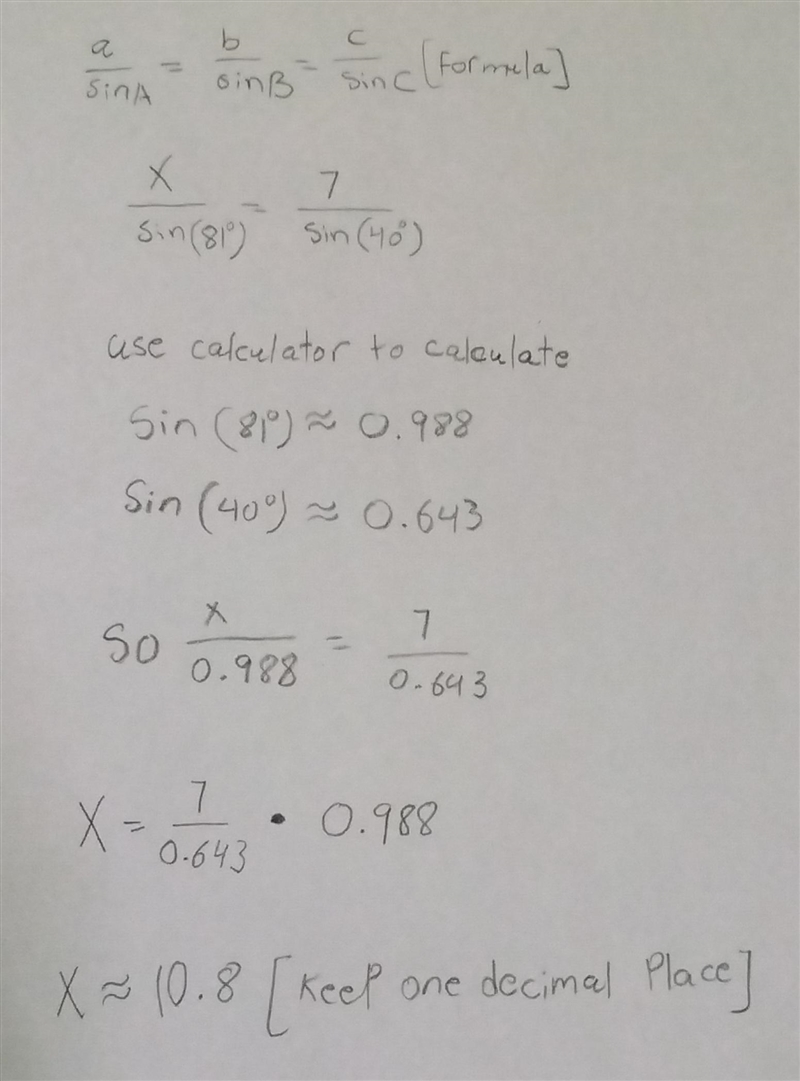 a/sinA = b/sinB = c/sinC [Formula]
X/sin(81°) = 7/sin(40°)
use calculator to calculate
Sin (81°) ≈ 0.988
Sin (40°) ≈ 0.643
So x/0.988 = 7/0.643
X = 7/0.643 • 0.988
X ≈ 10.8 [Keep one decimal Place]